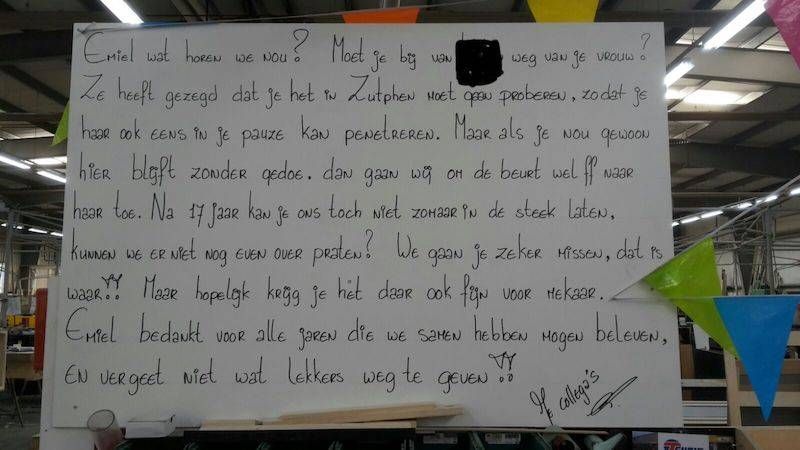 Emiel wat horen we nou? Moet je bij van weg van je vrouw?
Ze heeft gezegd dat je het in Zutphen moet gaan proberen, zodat je
haar ook eens in je pauze kan penetreren. Maar als je nou gewoon
hier blijft zonder gedoe. dan gaan wij om de beurt wel ff naar
haar toe. Na 17 jaar kan je ons toch niet zomaar in de steek laten,
kunnen we er niet nog even over praten? We gaan je zeker missen, dat is
waar!! Maar hopelijk krijg je het daar ook fijn voor mekaar.
Emiel bedankt voor alle jaren die we samen hebben mogen beleven,
en vergeet niet wat lekkers weg te geven!!
De collega's